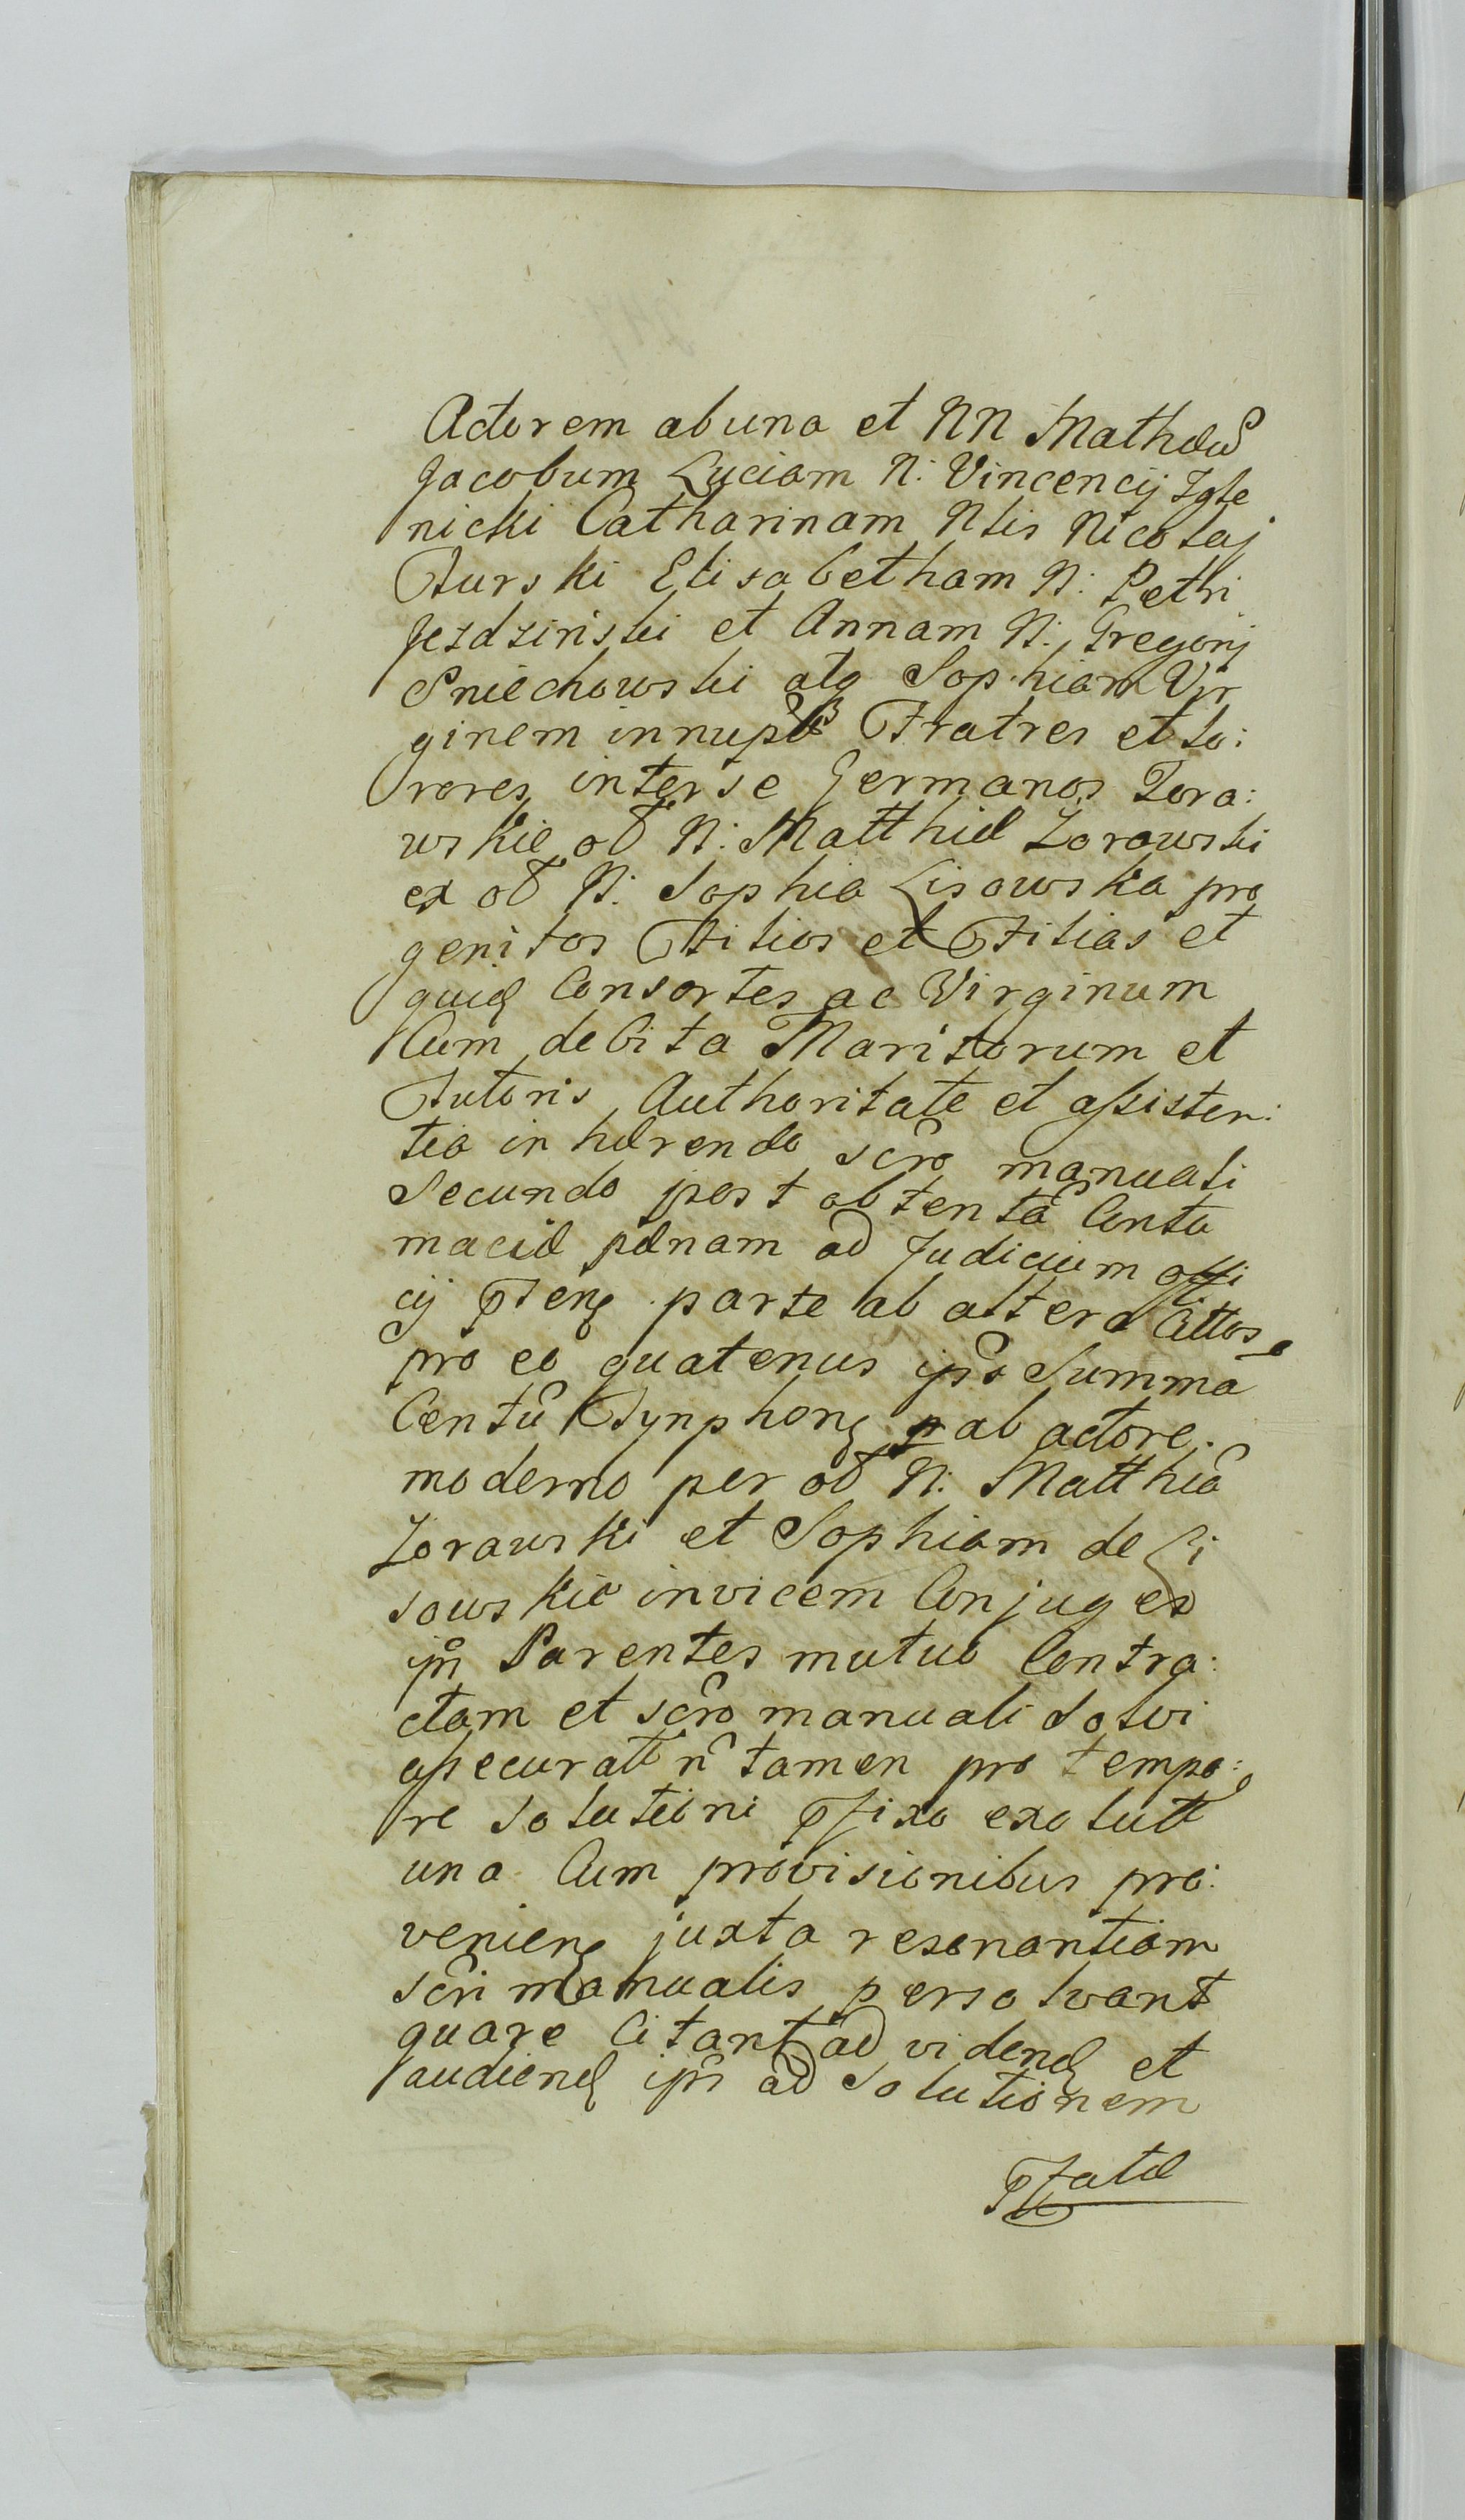 Actorem ab una et NN Mathæũ
Jacobum Luciam N: Vincencij Igle
nicki Catharinam Nlis Nicolaj
Turski Elisabetham N: Petri
Jezdzinski et Annam N: Gregorij
Sniechowski atq Sophiam Vir
ginem innuptã Fratres et So:
rores inter se Germanos Zora:
wskie oɫ N: Matthiæ Zorawski
ex oɫ N: Sophia Lisowska pro
genitos Filios et Filias et
quid Consortes ac Virginum
Cum debita Maritorum et
Tutoris Authoritate et assisten:
tia inhærendo scro manuali
Secundo post obtentã Contu
maciæ pænam ad Judicium offi
cij pten parte ab altera Cittos
pro eo quatenus ipsi Summã
Centũ Tynphon ab actore
moderno per oɫ N: Matthiã
Zorawski et Sophiam de Li
sowskie invicem Conjuges
ipñ Parentes mutuo Contra:
ctam et scro manuali Solvi
assecuratt ñ tamen pro tempo:
re Solutioni pfixo exolutt
una Cum provisionibus pro:
venien juxta resonantiam
scri manualis persolvant
quare Citant ad videnď et
audienď ipñ ad Solutionem
pfatæ